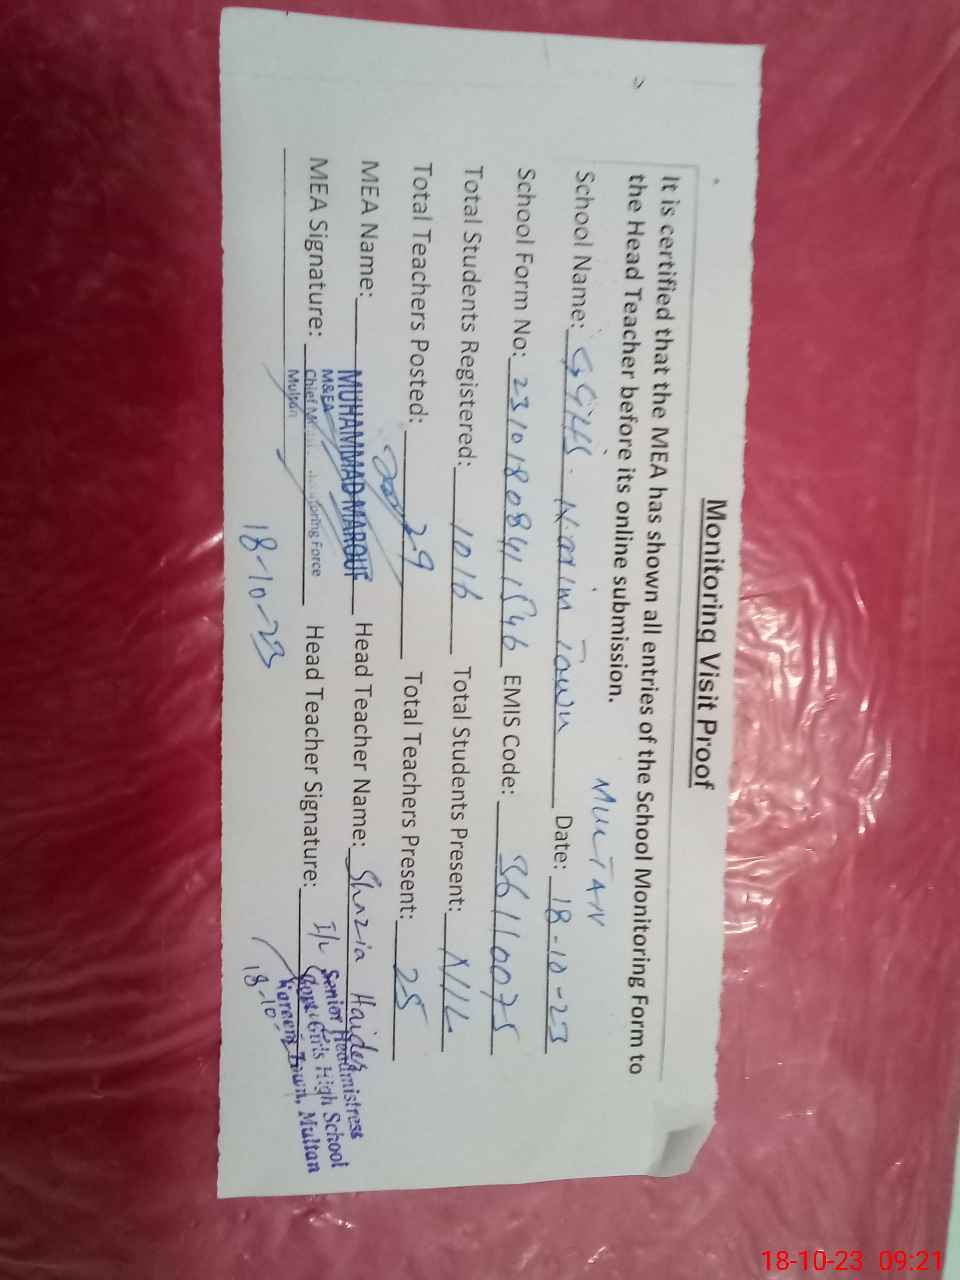 Monitoring Visit Proof
It is certified that the MEA has shown all entries of the School Monitoring Form to
the Head Teacher before its online submission.
MULTAN
School Name: GGHS. Town Date: 18-10-23
School Form No: EMIS Code: 36110075
Total Students Registered: 1016 Total Students Present: NIL
Total Teachers Posted: 29 Total Teachers Present: 25
MEA Name: MUHAMMAD MAROUF Head Teacher Name: Shazia Haider
MEA Signature: M&EA Head Teacher Signature: Senior Headmistress
Chief Monitoring Force Govt. Girls High School
Multan Town, Multan
18-10-23 18-10-
18-10-23 09:21